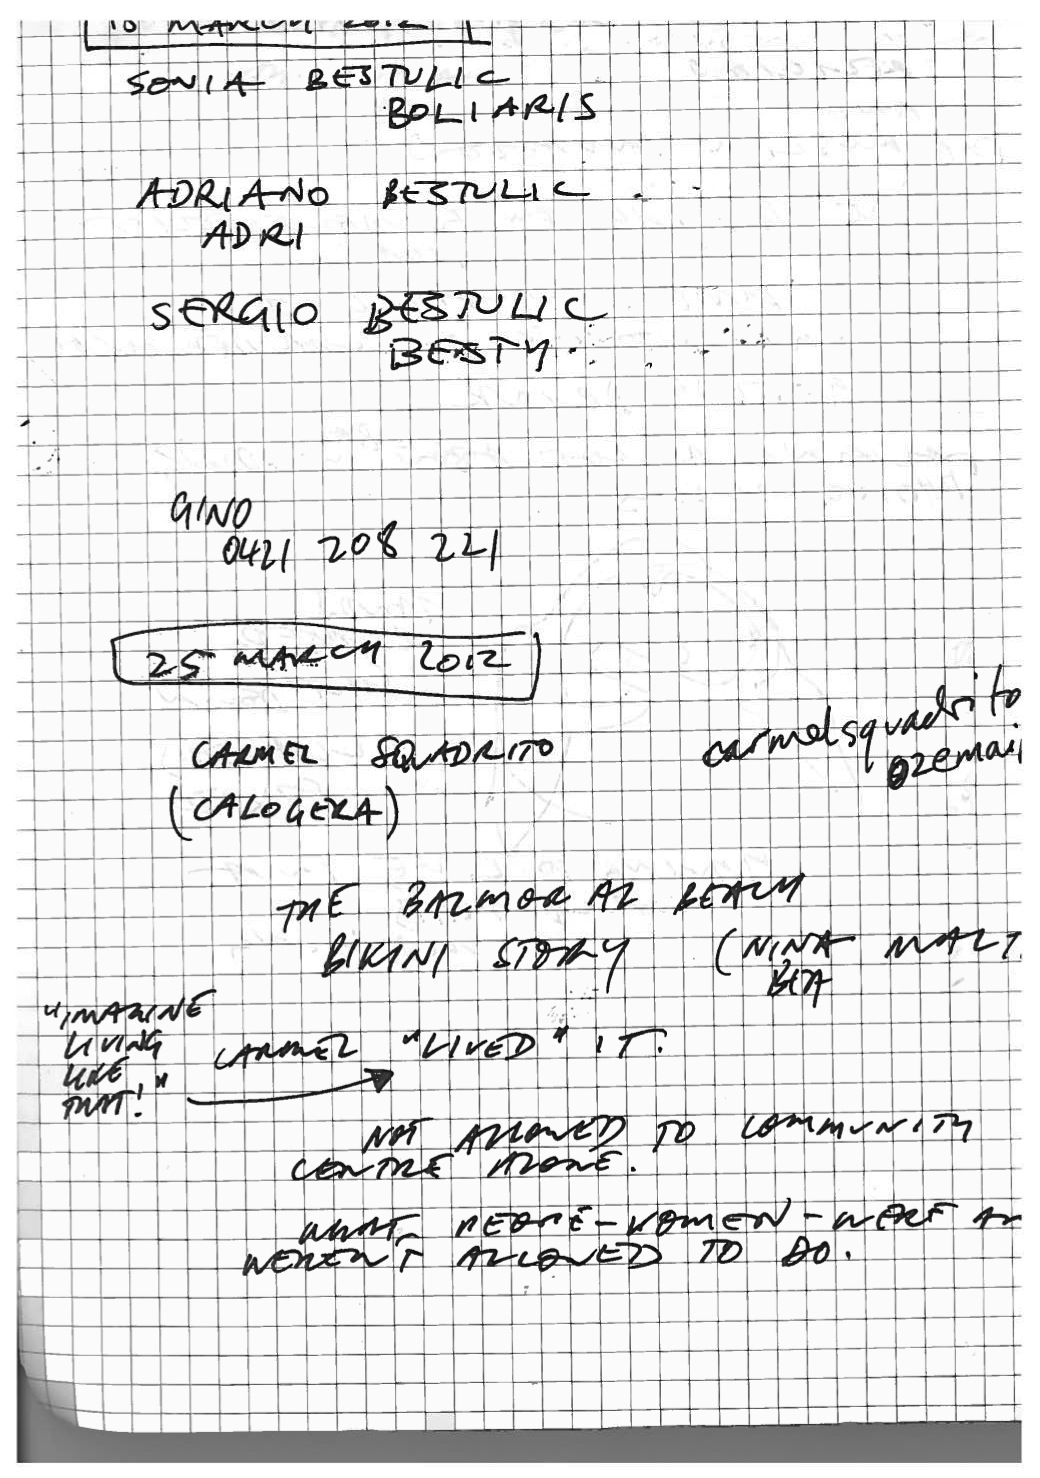 18 MARCH 2012
SONIA BESTULIC
BOLIARIS
ADRIANO BESTULIC
ADRI
SERGIO BESTULIC
BESTY.
GINO
0421 208 221
25 MARCH 2012
CARMEL SQUADRITO
(CALOGERA)
carmelsquadrito
ozemai
THE BALMORAL BEACH
BIKINI STORY (NINA MALT
BEA
"IMAGINE
LIVING
LIKE
THAT!"
CARMEL "LIVED" IT.
NOT ALLOWED TO COMMUNITY
CENTRE ALONE.
WHAT PEOPLE - WOMEN - WERE A
WEREN'T ALLOWED TO DO.